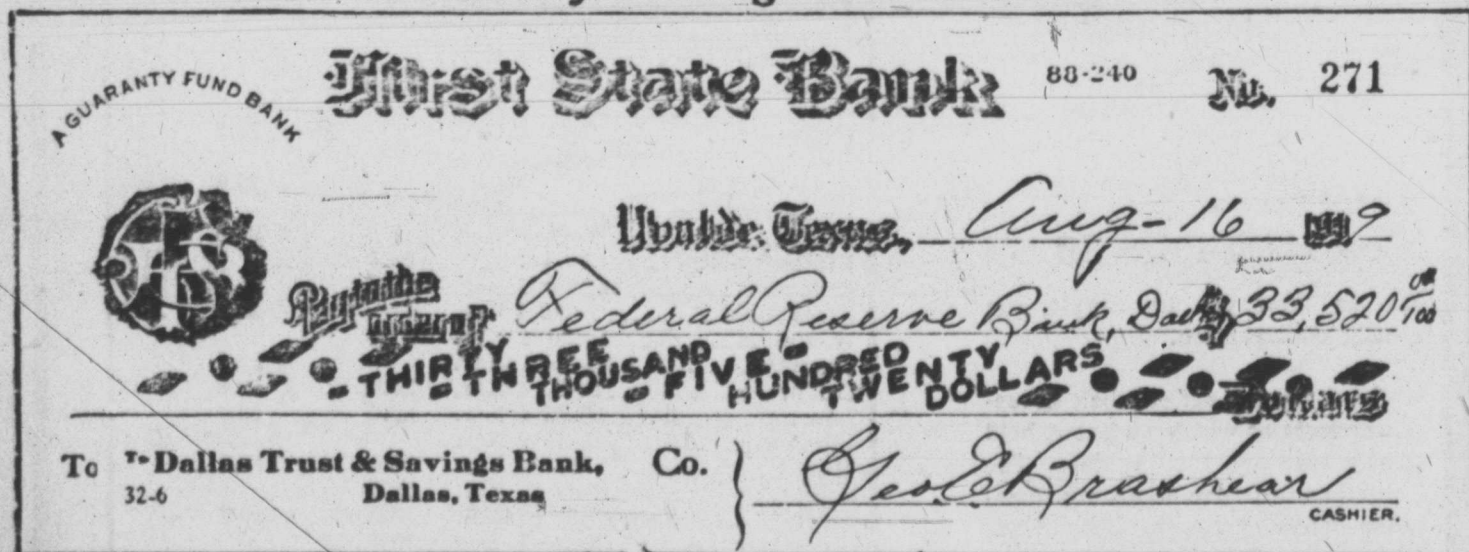 First State Bank 88-240 No. 271
A GUARANTY FUND BANK
Uvalde, Texas, Aug-16 1919
Pay to the order of Federal Reserve Bank, Dallas, $33,520 00/100
THIRTY-THREE THOUSAND-FIVE-HUNDRED TWENTY DOLLARS Dollars
To The Dallas Trust & Savings Bank, Co.
32-6 Dallas, Texas
Geo E Brashear
CASHIER.